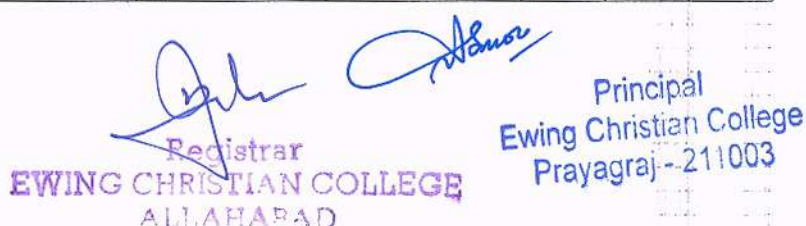 Registrar
EWING CHRISTIAN COLLEGE
ALLAHABAD
Principal
Ewing Christian College
Prayagraj - 211003